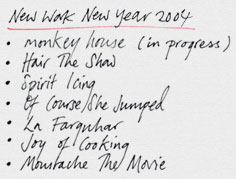 New Work New Year 2004
• monkey house (in progress)
• Hair The Show
• Spirit Icing
• Of Course She Jumped
• La Farquhar
• Joy of Cooking
• Moustache The Movie